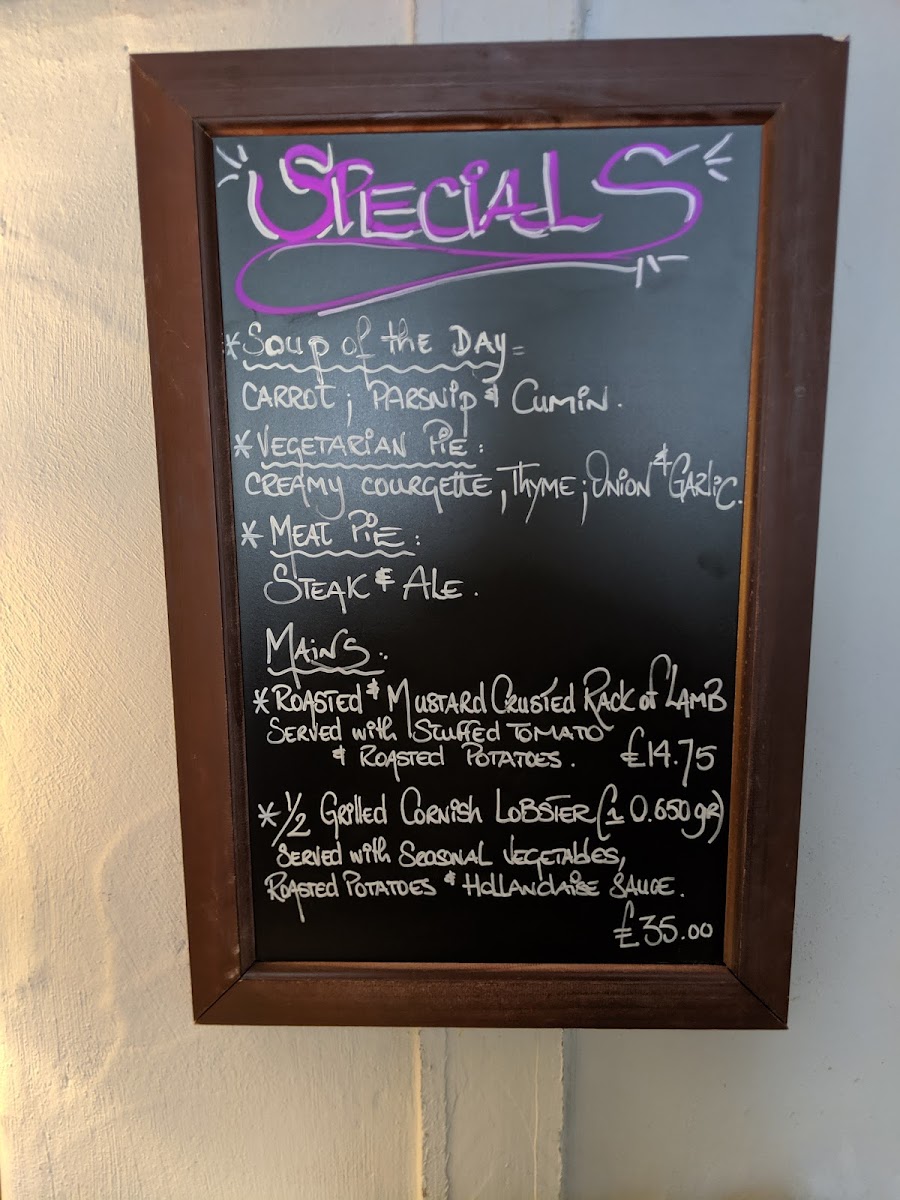 SPECIALS
*Soup of the DAY=
CARROT; PARSNiP & CUMiN.
*VEGETARiAN PiE:
CREAMY COURGETTE, THYME; ONiON & GARLiC.
*MEAT PiE:
STEAK & ALE.
MAiNS:
*ROASTED & MUSTARD CRUSTED RACK of LAMB
SERVED with STUffED TOMATO
& ROASTED POTATOES. £14.75
*1/2 GRilled CORNish LOBSTER (~ 0.650gR)
SERVED with SEASONAL VEGETAbLES,
ROASTED POTATOES & HOLLANDAiSE SAUCE.
£35.00